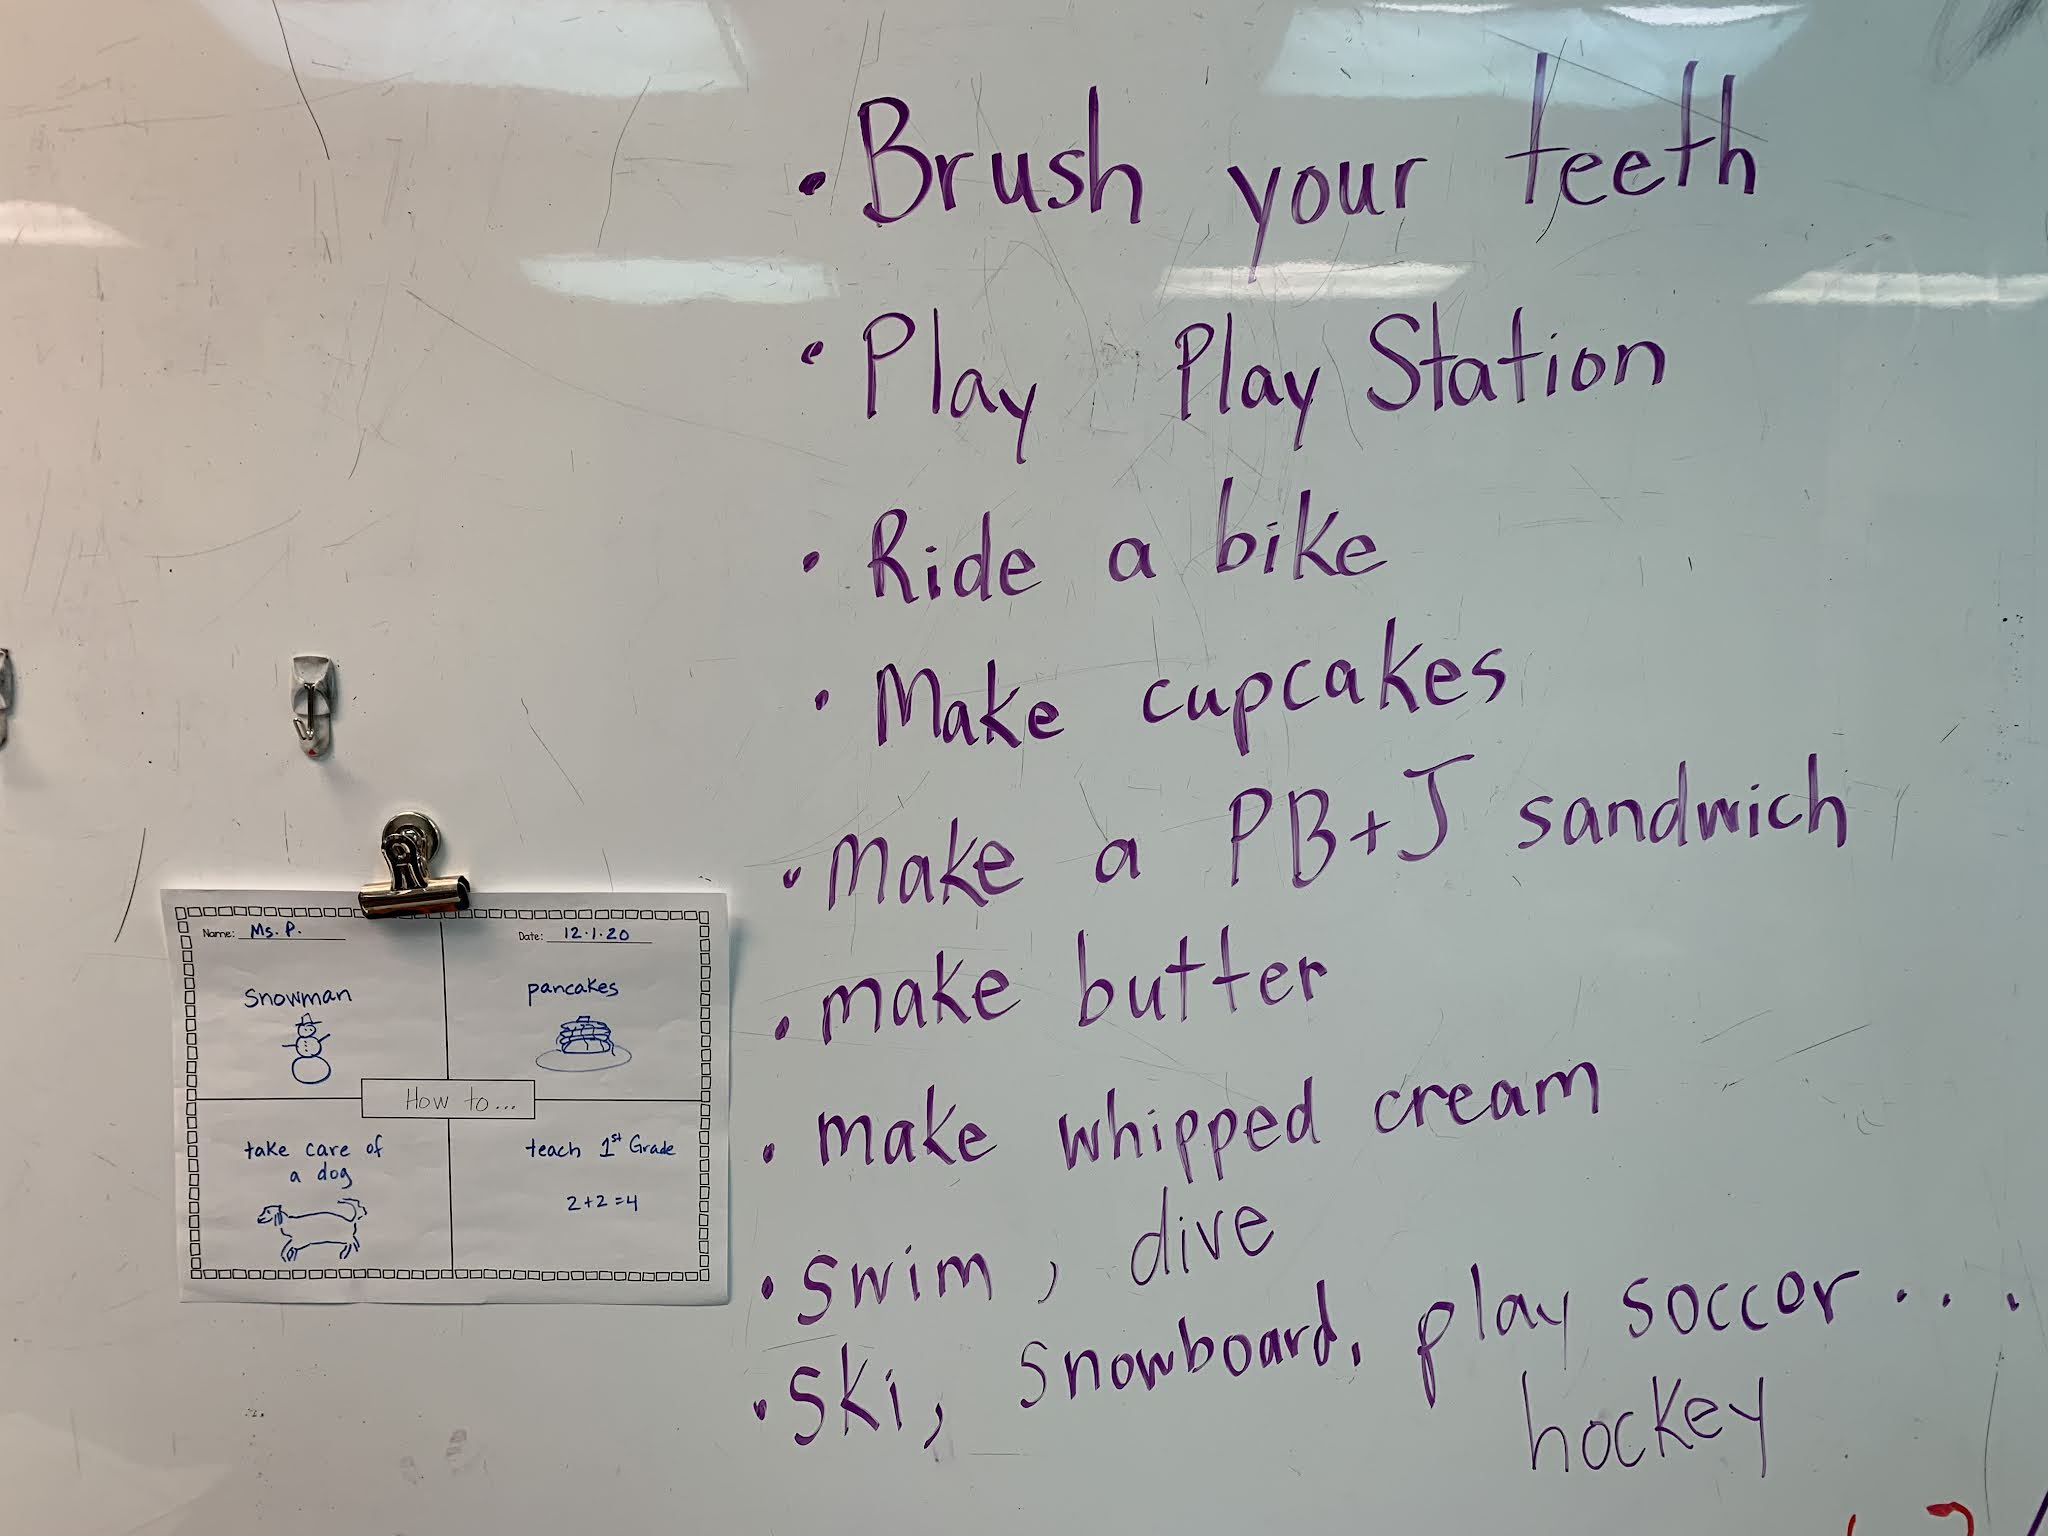 • Brush your teeth
• Play PlayStation
• Ride a bike
• Make cupcakes
• Make a PB+J sandwich
• make butter
• make whipped cream
• swim, dive
• Ski, snowboard, play soccer....
hockey
Name: Ms. P. Date: 12.1.20
Snowman
pancakes
How to...
take care of
a dog
teach 1st Grade
2+2=4